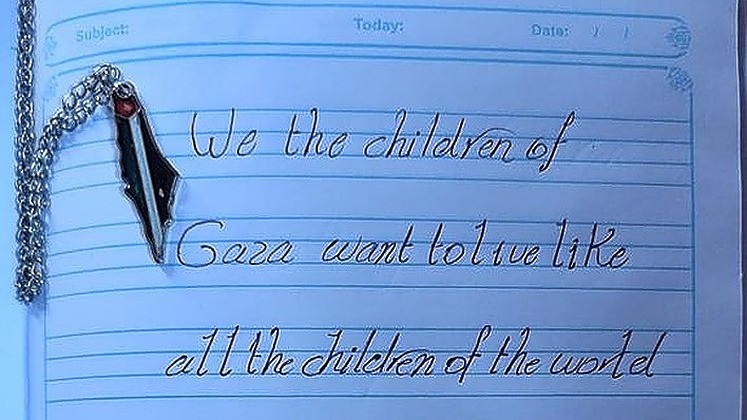 Subject: Today: Date: / /
We the children of
Gaza want to live like
all the children of the world